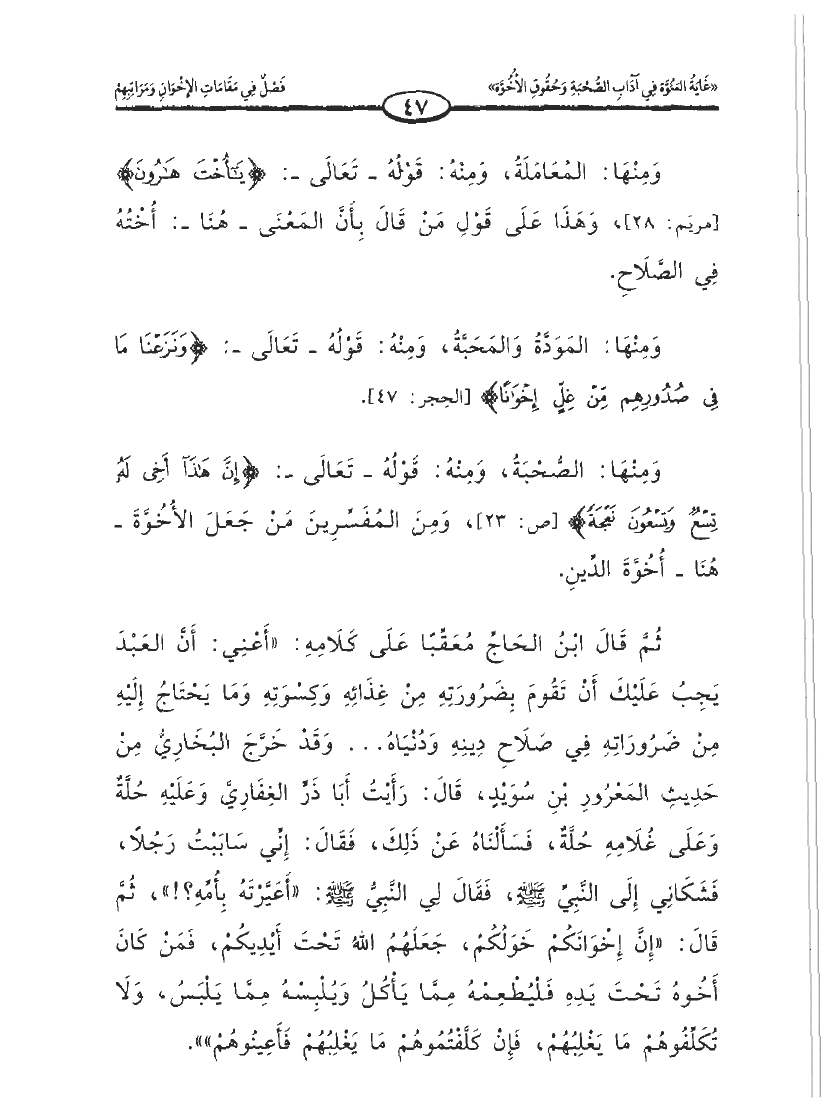 «غَايَةُ المُرُوَّة فِي آدَابِ الصُّحْبَةِ وَحُقُوقِ الأُخُوَّة» ٤٧ فَصْلٌ فِي مَقَامَاتِ الإِخْوَانِ وَمَرَاتِبِهِمْ
وَمِنْهَا: المُعَامَلَةُ، وَمِنْهُ: قَوْلُهُ ـ تَعَالَى ـ: ﴿يَٰٓأُخْتَ هَٰرُونَ﴾
[مريَم: ٢٨]، وَهَذَا عَلَى قَوْلِ مَنْ قَالَ بِأَنَّ المَعْنَى ـ هُنَا ـ: أُخْتُهُ
فِي الصَّلَاحِ.
وَمِنْهَا: المَوَدَّةُ وَالمَحَبَّةُ، وَمِنْهُ: قَوْلُهُ ـ تَعَالَى ـ: ﴿وَنَزَعْنَا مَا
فِي صُدُورِهِم مِّنْ غِلٍّ إِخْوَٰنًا﴾ [الحِجر: ٤٧].
وَمِنْهَا: الصُّحْبَةُ، وَمِنْهُ: قَوْلُهُ ـ تَعَالَى ـ: ﴿إِنَّ هَٰذَآ أَخِي لَهُۥ
تِسْعٌ وَتِسْعُونَ نَعْجَةً﴾ [ص: ٢٣]، وَمِنَ المُفَسِّرِينَ مَنْ جَعَلَ الأُخُوَّةَ ـ
هُنَا ـ أُخُوَّةَ الدِّينِ.
ثُمَّ قَالَ ابْنُ الحَاجِّ مُعَقِّبًا عَلَى كَلَامِهِ: «أَعْنِي: أَنَّ العَبْدَ
يَجِبُ عَلَيْكَ أَنْ تَقُومَ بِضَرُورَتِهِ مِنْ غِذَائِهِ وَكِسْوَتِهِ وَمَا يَحْتَاجُ إِلَيْهِ
مِنْ ضَرُورَاتِهِ فِي صَلَاحِ دِينِهِ وَدُنْيَاهُ... وَقَدْ خَرَّجَ البُخَارِيُّ مِنْ
حَدِيثِ المَعْرُورِ بْنِ سُوَيْدٍ، قَالَ: رَأَيْتُ أَبَا ذَرٍّ الغِفَارِيَّ وَعَلَيْهِ حُلَّةٌ
وَعَلَى غُلَامِهِ حُلَّةٌ، فَسَأَلْنَاهُ عَنْ ذَلِكَ، فَقَالَ: إِنِّي سَابَبْتُ رَجُلًا،
فَشَكَانِي إِلَى النَّبِيِّ ﷺ، فَقَالَ لِي النَّبِيُّ ﷺ: «أَعَيَّرْتَهُ بِأُمِّهِ؟!»، ثُمَّ
قَالَ: «إِنَّ إِخْوَانَكُمْ خَوَلُكُمْ، جَعَلَهُمُ اللهُ تَحْتَ أَيْدِيكُمْ، فَمَنْ كَانَ
أَخُوهُ تَحْتَ يَدِهِ فَلْيُطْعِمْهُ مِمَّا يَأْكُلُ وَيُلْبِسْهُ مِمَّا يَلْبَسُ، وَلَا
تُكَلِّفُوهُمْ مَا يَغْلِبُهُمْ، فَإِنْ كَلَّفْتُمُوهُمْ مَا يَغْلِبُهُمْ فَأَعِينُوهُمْ»».